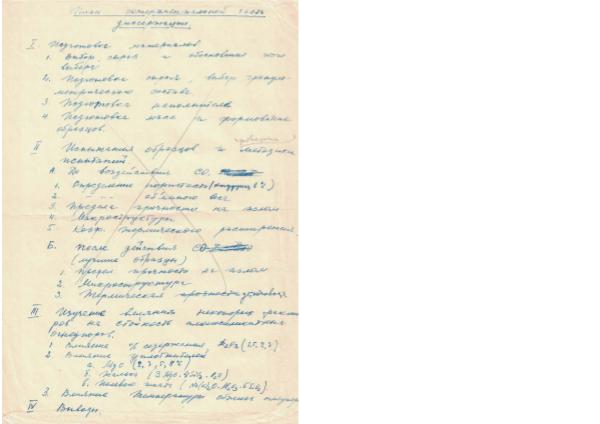 План экспериментальной части
диссертации.
I Подготовка материалов
1. Выбор сырья и обоснование
выбора
2. Подготовка выбор грануло-
метрического состава
3. Подготовка наполнителя
4 Подготовка масс и формование
образцов.
II Испытания образцов и методика
испытаний.
А. До воздействия CO.
1. Определение пористости
2. - " - объёмного веса
3. Предела прочности на излом
4. Микроструктуры
5. Коэф. термического расширения
Б. После действия CO
(лучшие образцы)
1. Предел прочности на излом
2. Микроструктура
3. Термическая
III Изучение влияния некоторых факто
ров на стойкость алюмосиликатных
огнеупоров.
1 Влияние % содержания
2. Влияние
а. MgO
б. Тальк
в. Полевой шпат
3. Влияние температуры обжига
IV Выводы.